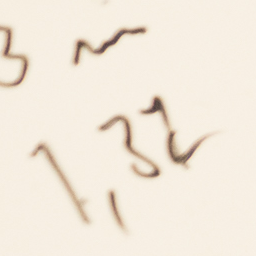 3 m
1,32